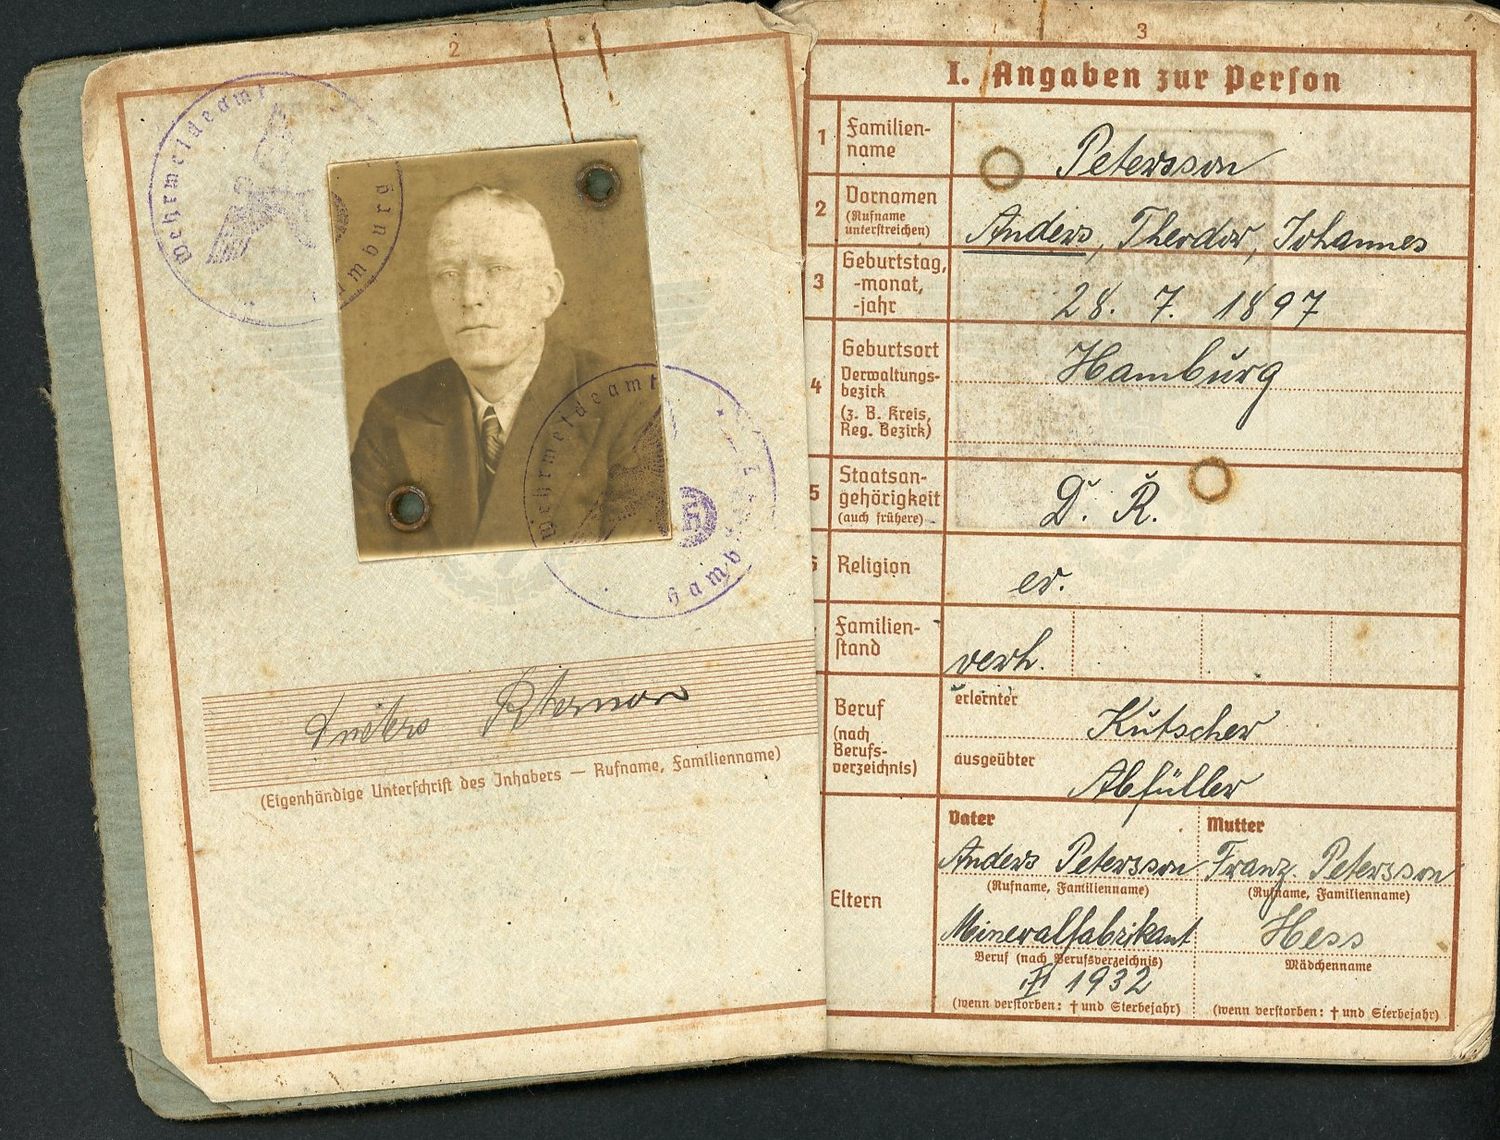 2
Wehrmeldeamt
Hamburg
Wehrmeldeamt
Hamburg
Anders Petersson
(Eigenhändige Unterschrift des Inhabers — Rufname, Familienname)
3
I. Angaben zur Person
1 Familien-
name
Petersson
2 Vornamen
(Rufname
unterstreichen)
Anders, Theodor, Johannes
3 Geburtstag,
-monat,
-jahr
28. 7. 1897
4 Geburtsort
Verwaltungs-
bezirk
(z. B. Kreis,
Reg. Bezirk)
Hamburg
5 Staatsan-
gehörigkeit
(auch frühere)
D. R.
Religion
ev.
Familien-
stand
verh.
Beruf
(nach
Berufs-
verzeichnis)
erlernter
Kutscher
ausgeübter
Abfüller
Eltern
Vater
Anders Petersson
(Rufname, Familienname)
Mineralfabrikant
Beruf (nach Berufsverzeichnis)
1932
(wenn verstorben: † und Sterbejahr)
Mutter
Franz. Petersson
(Rufname, Familienname)
Hess
Mädchenname
(wenn verstorben: † und Sterbejahr)